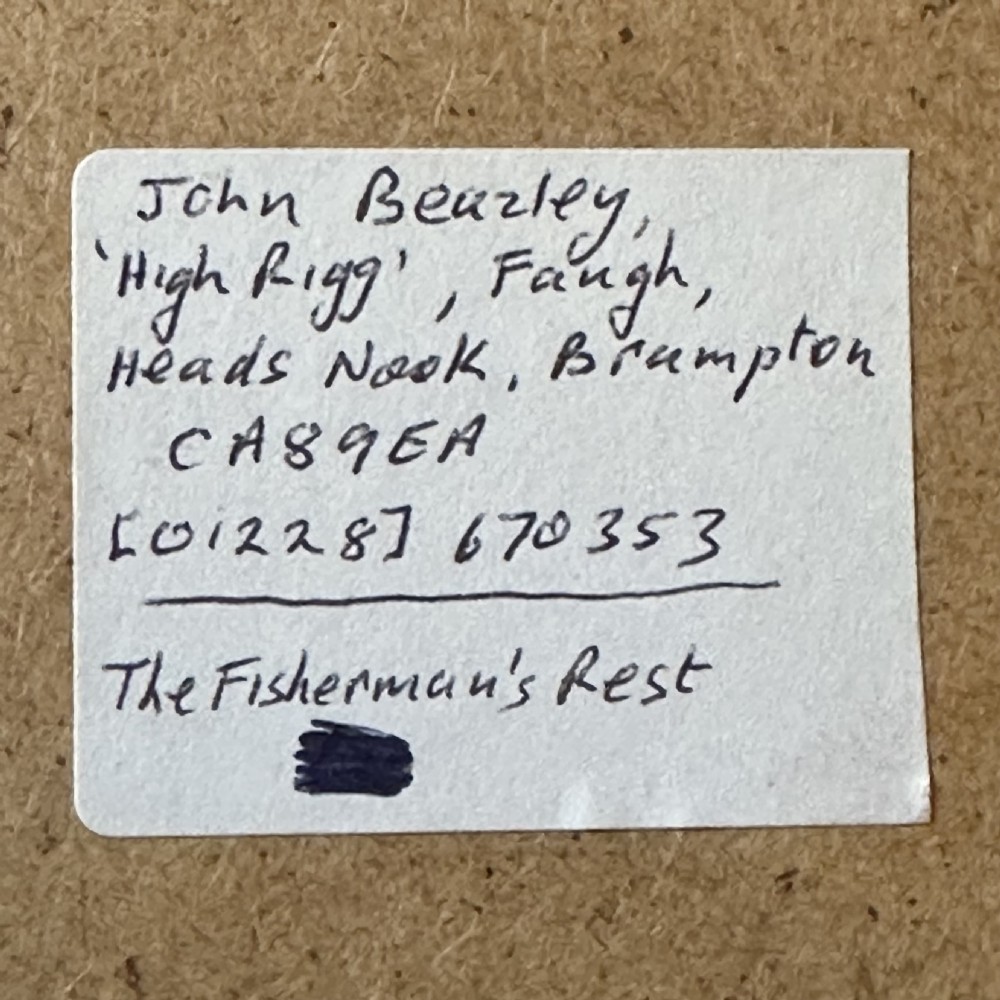 John Beazley,
'High Rigg', Faugh,
Heads Nook, Brampton
CA89EA
[01228] 670353
The Fisherman's Rest